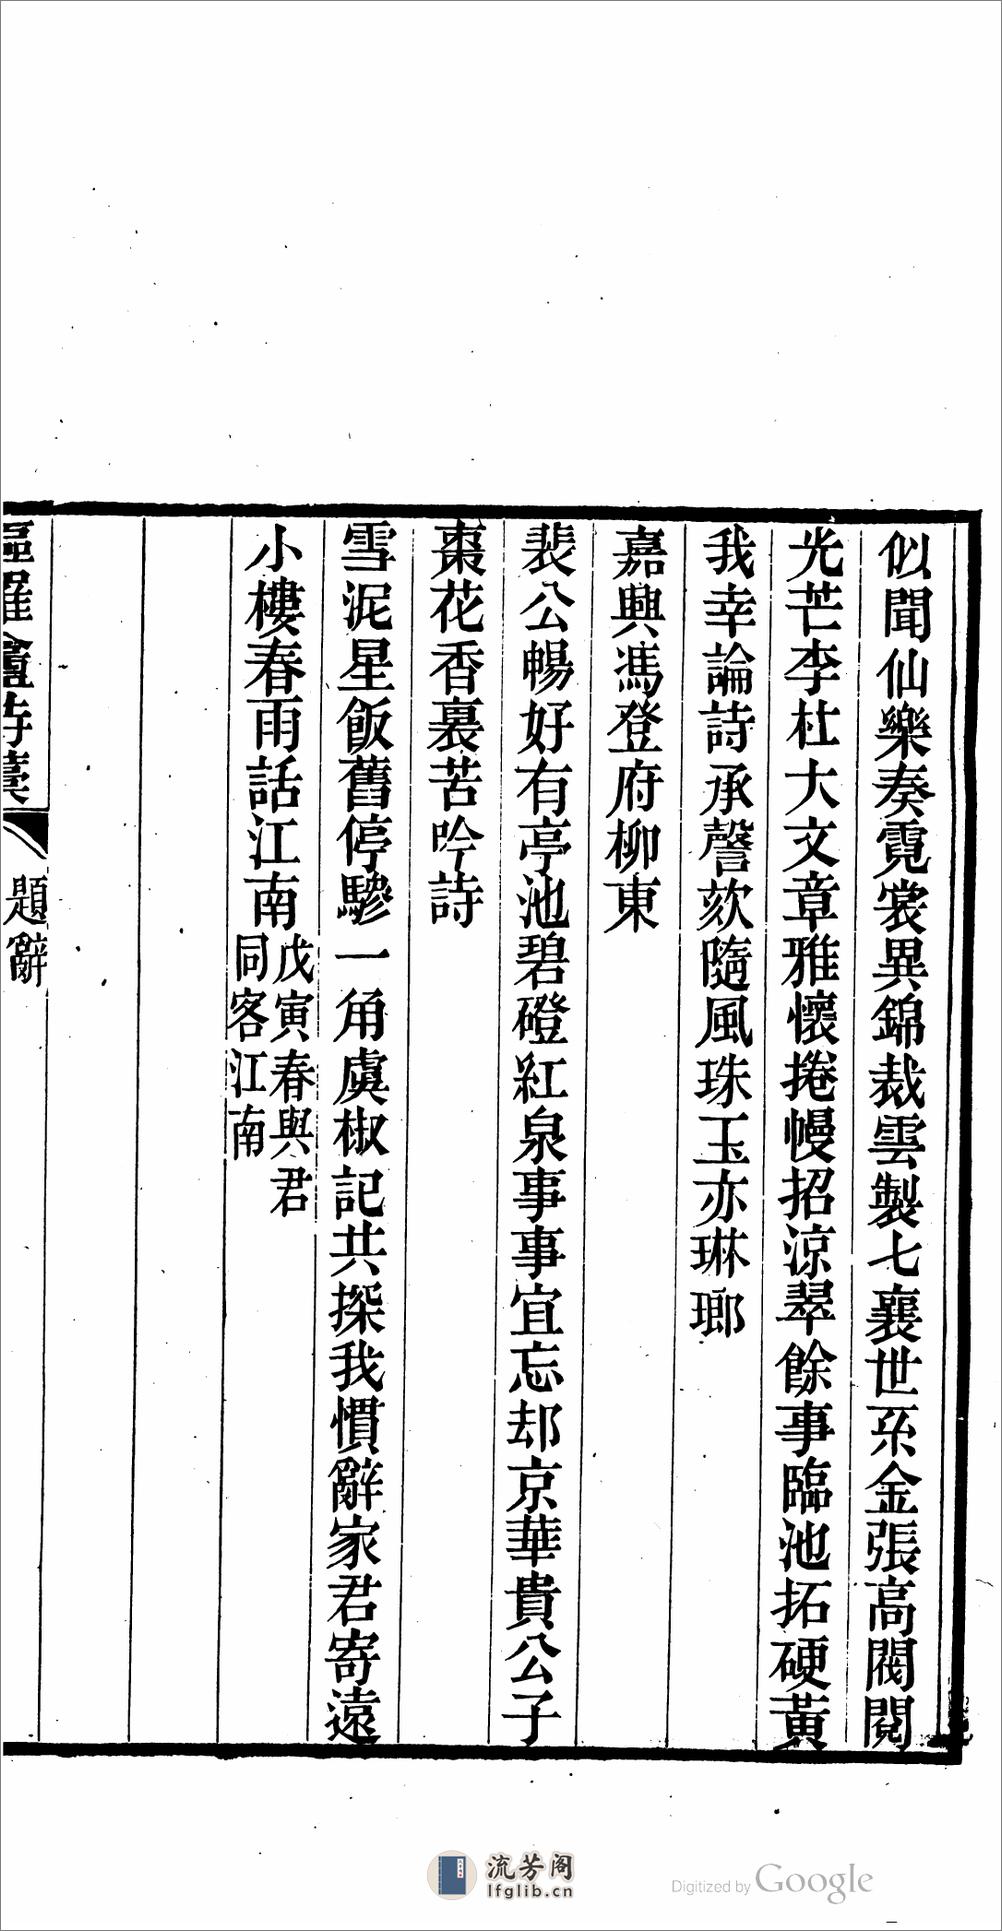 似聞仙樂奏霓裳異錦裁雲製七襄世系金張高閥閱
光芒李杜大文章雅懷捲幔招涼翠餘事臨池拓硬黃
我幸論詩承謦欬隨風珠玉亦琳瑯
嘉興馮登府柳東
裴公暢好有亭池碧磴紅泉事事宜忘却京華貴公子
棗花香裏苦吟詩
雪泥星飯舊停驂一角虞椒記共探我慣辭家君寄遠
小樓春雨話江南
戊寅春與君
同客江南
題辭
流芳阁
lfglib.cn
Digitized by Google